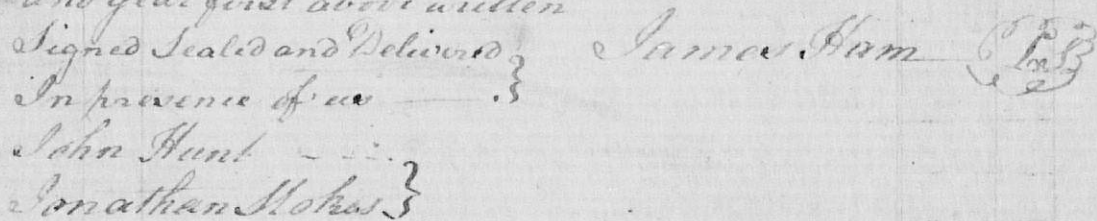 and year first above written
Signed Sealed and Delivered } James Ham (LS)
In presence of us
John Hunt
Jonathan Stokes }